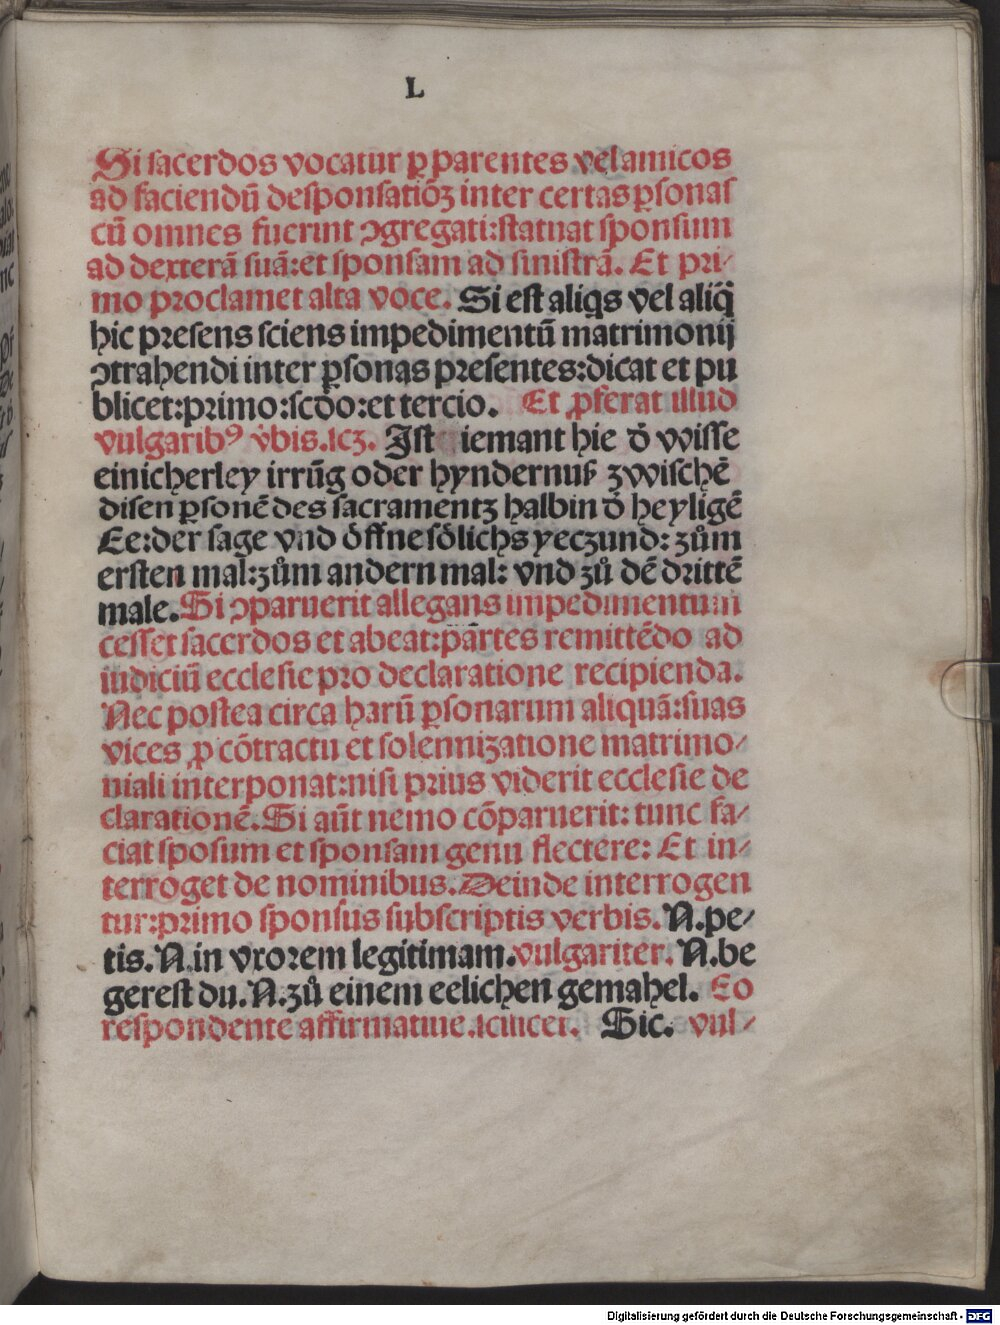 L
Si sacerdos vocatur ꝑ parentes vel amicos
ad faciendū desponsatiōꝫ inter certas ꝑsonas
cū omnes fuerint ꝯgregati:statuat sponsum
ad dexterā suā:et sponsam ad sinistrā. Et pri⸗
mo proclamet alta voce. Si est aliqs vel aliq̄
hic presens sciens impedimentū matrimonij
ꝯtrahendi inter ꝑsonas presentes:dicat et pu
blicet:primo:scd̄o:et tercio. Et ꝓferat illud
vulgaribꝰ v̄bis.scꝫ. Jst iemant hie d̄ wisse
einicherley irrūg oder hyndernuß zwischē
disen ꝑsonē des sacramentz halbin d̄ heyligē
Ee:der sage vnd öffne sölichs yeczund: zům
ersten mal:zům andern mal: vnd zů dē drittē
male. Si ꝯparuerit allegans impedimentum
cesset sacerdos et abeat:partes remittēdo ad
iudiciū ecclesie pro declaratione recipienda.
Nec postea circa harū ꝑsonarum aliquā:suas
vices ꝓ cōtractu et solennizatione matrimo⸗
niali interponat:nisi prius viderit ecclesie de
clarationē. Si aūt nemo cōparuerit: tunc fa⸗
ciat sposum et sponsam genu flectere: Et in⸗
terroget de nominibus. Deinde interrogen
tur:primo sponsus subscriptis verbis. N.pe⸗
tis. N.in vxorem legitimam. vulgariter. N.be
gerest du. N.zů einem eelichen gemahel. Eo
respondente affirmatiue.scilicet. Sic. vul⸗
Digitalisierung gefördert durch die Deutsche Forschungsgemeinschaft - DFG